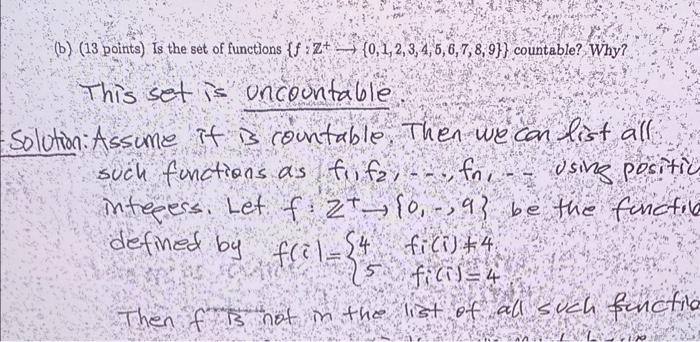 (b) (13 points) Is the set of functions {f : Z⁺ → {0, 1, 2, 3, 4, 5, 6, 7, 8, 9}} countable? Why?
This set is uncountable.
Solution: Assume it is countable. Then we can list all
such functions as f₁, f₂, ---, fₙ, -- using positiv
integers. Let f : Z⁺ → {0, -, 9} be the functio
defined by f(i) = { 4 fᵢ(i) ≠ 4
5 fᵢ(i) = 4
Then f is not in the list of all such functio